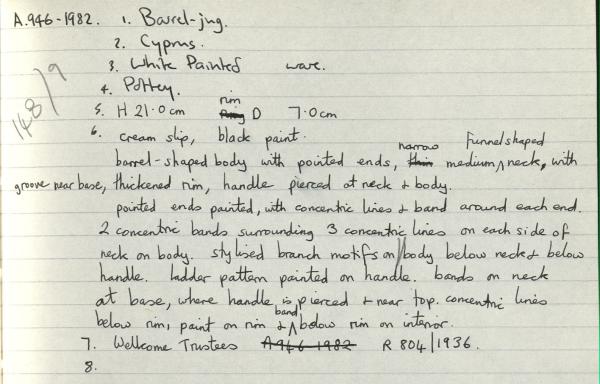 A.946-1982. 1. Barrel-jug.
2. Cyprus.
3. White Painted ware.
4. Pottery.
148/9
5. H 21.0cm rim D 7.0cm
6. cream slip, black paint.
barrel-shaped body with pointed ends, narrow medium, funnel shaped neck, with
groove near base, thickened rim, handle pierced at neck & body.
pointed ends painted, with concentric lines & band around each end.
2 concentric bands surrounding 3 concentric lines on each side of
neck on body. stylised branch motifs on/body below neck & below
handle. ladder pattern painted on handle. bands on neck
at base, where handle is pierced & near top. concentric lines
below rim, paint on rim & band below rim on interior.
7. Wellcome Trustees A946-1982 R 804/1936.
8.